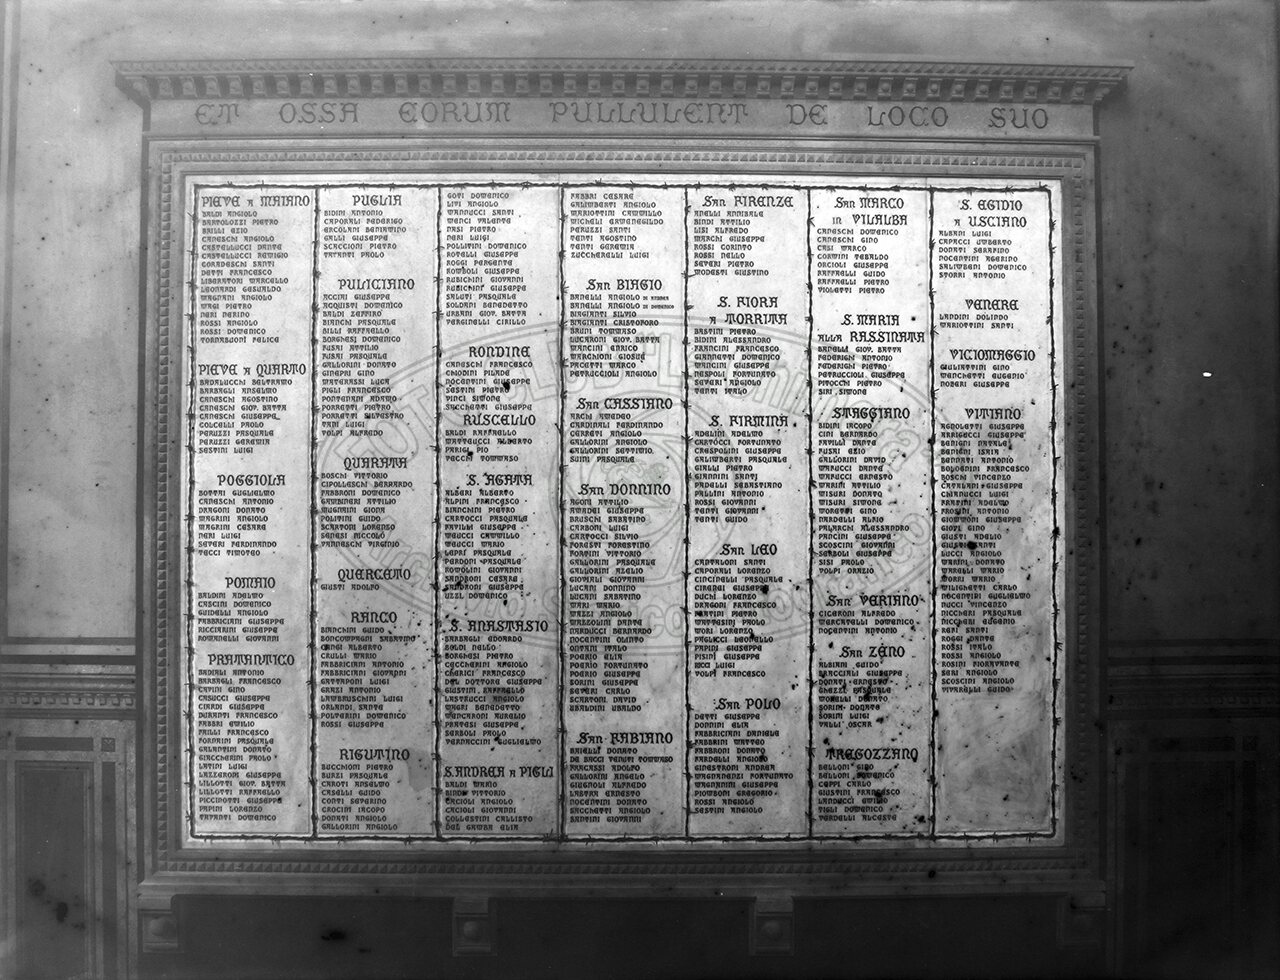 ET OSSA EORUM PULLULENT DE LOCO SUO
PIEVE A MAIANO
BALDI ANGIOLO
BARTOLOZZI PIETRO
BRILLI EZIO
CANESCHI ANGIOLO
CASTELLUCCI DANTE
CASTELLUCCI REMIGIO
CORADESCHI SANTI
DETTI FRANCESCO
LIBERATORI MARCELLO
LEONARDI GESUALDO
MAGNANI ANGIOLO
MAGI PIETRO
NERI NERINO
ROSSI ANGIOLO
ROSSI DOMENICO
TORNABUONI FELICE
PIEVE A QUARTO
BADALUCCHI BELTRAMO
BARBAGLI ANSELMO
CANESCHI AGOSTINO
CANESCHI GIOV. BATTA
CANESCHI GIUSEPPE
COLCELLI PAOLO
PERUZZI PASQUALE
PERUZZI GEREMIA
SESTINI LUIGI
POGGIOLA
BOTTAI GUGLIELMO
CANESCHI ANTONIO
DRAGONI DONATO
MAGRINI ANGIOLO
MAGRINI CESARE
NERI LUIGI
SETERI FERDINANDO
TECCI TIMOTEO
POMAIO
BALDINI ADELMO
CASCINI DOMENICO
GUIDELLI ANGIOLO
FABBRICIANI GIUSEPPE
RICCIARINI GIUSEPPE
ROMANELLI GIOVANNI
PRATANTICO
BADIALI ANTONIO
BARBAGLI FRANCESCO
CAPINI GINO
CASUCCI GIUSEPPE
CIARDI GIUSEPPE
DURANTI FRANCESCO
FABBRI EMILIO
FAILLI FRANCESCO
FORNAINI PASQUALE
GALANTINI DONATO
GIACCHERINI PAOLO
LATINI LUIGI
LAZZERONI GIUSEPPE
LILLOTTI GIOV. BATTA
LILLOTTI RAFFAELLO
PICCINOTTI GIUSEPPE
PAPINI LORENZO
TAVANTI DOMENICO
PUGLIA
BIDINI ANTONIO
CAPORALI FEDERIGO
ERCOLANI BENIAMINO
GALLI GIUSEPPE
SCACCIONI PIETRO
TAVANTI PAOLO
PULICIANO
ACCIAI GIUSEPPE
ACQUISTI DOMENICO
BALDI ZEFFIRO
BIANCHI PASQUALE
BILLI RAFFAELLO
BORGHESI DOMENICO
FUSAI ATTILIO
FUSAI PASQUALE
GALLORINI DONATO
GINEPRI GINO
MATERASSI LUCA
PIGLI FRANCESCO
PONTENANI ADAMO
PORRETTI PIETRO
PORRETTI SILVESTRO
TANI LUIGI
VOLPI ALFREDO
QUARATA
BOSCHI VITTORIO
CIPOLLESCHI BERNARDO
FABBRONI DOMENICO
GAMBINERI ATTILIO
MUGNAINI GIONA
POLITINI GUIDO
SCARTONI LORENZO
SENESI NICCOLO
VANNESCHI VIRGINIO
QUERCETO
GIUSTI ADOLFO
RANCO
BIANCHINI GUIDO
BONCOMPAGNI SABATINO
CANGI ALBERTO
CRULLI MARIO
FABBRICIANI ANTONIO
FABBRICIANI GIOVANNI
GATTAPONI LUIGI
GRAZI ANTONIO
LAMBRUSCHINI LUIGI
ORLANDI SANTE
POLVERINI DOMENICO
ROSSI GIUSEPPE
RIGUTINO
BUCCHIONI PIETRO
BURZI PASQUALE
CAROTI ANSELMO
CASELLI GUIDO
CONTI SEVERINO
CROCINI IACOPO
DONATI ANGIOLO
GALLORINI ANGIOLO
GOTI DOMENICO
LIVI ANGIOLO
MANNUCCI SANTI
MENCI VALENTE
NASI PIETRO
NERI LUIGI
POLLITINI DOMENICO
ROTELLI GIUSEPPE
ROGGI PERGENTE
ROMBOLI GIUSEPPE
RUBICHINI GIOVANNI
RUBICHINI GIUSEPPE
SALUTI PASQUALE
SOLDANI BENEDETTO
URBANI GIOV. BATTA
VERGINELLI CIRILLO
RONDINE
CANESCHI FRANCESCO
CHIODINI PILADE
NOCENTINI GIUSEPPE
SESTINI PIETRO
VINCI SIMONE
SACCHETTI GIUSEPPE
RUSCELLO
BALDI RAFFAELLO
MATTEUCCI ALBERTO
PARIGI PIO
VECCHI TOMMASO
S. AGATA
ALBERI ALBERTO
ALPINI FRANCESCO
BIANCHINI PIETRO
CARTOCCI PASQUALE
FATILLI GIUSEPPE
MEUCCI CAMILLO
MEUCCI MARIO
LAPRI PASQUALE
PERDONI PASQUALE
ROMOLINI GIOVANNI
SANDRONI CESARE
SANDRONI GIUSEPPE
UZZI DOMENICO
S. ANASTASIO
BARBAGLI EDOARDO
BOLDI NELLO
BORGHESI PIETRO
CECCHERINI ANGIOLO
CHERICI FRANCESCO
DEL DOTTORE GIUSEPPE
GIUSTINI RAFFAELLO
LASTRUCCI ANGIOLO
MAGRI BENEDETTO
MENCARONI AURELIO
PRATESI GIUSEPPE
SERBOLI PAOLO
VERNACCINI GUGLIELMO
S. ANDREA A PIGLI
BALDI MARIO
BINDI VITTORIO
CACIOLI ANGIOLO
CACIOLI GIOVANNI
COLLESTINI CALLISTO
DEL GAMBA ELIA
FABBRI CESARE
GALIMBERTI ANGIOLO
MARIOTTINI CAMMILLO
MICHELI ERMENEGILDO
PERUZZI SANTI
TENTI AGOSTINO
TENTI GEREMIA
ZUCCHERELLI LUIGI
San BIAGIO
BANELLI ANGIOLO DI ANDREA
BANELLI ANGIOLO DI DOMENICO
BIAGIANTI SILVIO
BIAGIANTI CRISTOFORO
BRUNI TOMMASO
LUCARONI GIOV. BATTA
MANCINI ENRICO
MARCHIONI GIOSUÈ
PACETTI MARCO
PETRUCCIOLI ANGIOLO
San CASSIANO
ARCHI AMEDEO
CARDINALI FERDINANDO
CERRETI ANGIOLO
GALLORINI ANGIOLO
GALLORINI SETTIMIO
GUINI PASQUALE
San DONNINO
AGONI ATTILIO
AMADEI GIUSEPPE
BRUSCHI SABATINO
CARBONI LUIGI
CARTOCCI SILVIO
FORESTI FORESTINO
FORTINI VITTORIO
GALLORINI PASQUALE
GALLORINI AZELIO
GIOVIALI GIOVANNI
LUCANI DONNINO
LUCANI SABATINO
MARI MARIO
MAZZI ANGIOLO
MAZZOLINI DANTE
NARDUCCI BERNARDO
NOCENTINI OLINTO
ONTANI ITALO
POERIO ELIA
POERIO FORTUNATO
POERIO GIUSEPPE
SORINI GIUSEPPE
SEVERI CARLO
SCARTONI DAVID
UBALDINI UBALDO
San FABIANO
BAIELLI DONATO
DE BACCI VENUTI TOMMASO
FARCASSI ADOLFO
GALLORINI ANGELO
GIUGNOLI ALFREDO
LASTRA ERNESTO
NOCENTINI DONATO
SACCHETTI ANGIOLO
SANTINI GIOVANNI
San FIRENZE
ANELLI ANNIBALE
BINDI ATTILIO
LISI ALFREDO
MARCHI GIUSEPPE
ROSSI CORINTO
ROSSI NELLO
SETERI PIETRO
MODESTI GIUSTINO
S. FIORA
A TORRITA
BASTINI PIETRO
BIDINI ALESSANDRO
FRANCINI FRANCESCO
GIANNETTI DOMENICO
MANCINI GIUSEPPE
NESPOLI FORTUNATO
SEVERI ANGIOLO
TENTI ITALO
S. FIRMINA
ADELINI ADELMO
CARTOCCI FORTUNATO
CRESPOLINI GIUSEPPE
GALIMBERTI PASQUALE
GIALLI PIETRO
GIANNINI SANTI
PADELLI SEBASTIANO
PALLINI ANTONIO
ROSSI GIOVANNI
TENTI GIOVANNI
TENTI GUIDO
San LEO
CANTALONI SANTI
CAPORALI LORENZO
CINCINELLI PASQUALE
CIRERI GIUSEPPE
DUCHI LORENZO
DRAGONI FRANCESCO
MARTINI PIETRO
MATTESINI PAOLO
MORI LORENZO
PIGLIUCCI LEONELLO
PAPINI GIUSEPPE
PISINI GIUSEPPE
RICCI LUIGI
VOLPI FRANCESCO
San POLO
DETTI GIUSEPPE
DONNINI ELIA
FABBRICIANI DANIELE
FABBRINI MATTEO
FABBRONI DONATO
FARDELLI ANGIOLO
GINESTRONI ANDREA
MAGNANENZI FORTUNATO
MAGNANENZI GIUSEPPE
PIOMBONI GREGORIO
ROSSI ANGIOLO
SESTINI ANGIOLO
San MARCO
in VILALBA
CANESCHI DOMENICO
CANESCHI GINO
CASI MARCO
GORMINI TEBALDO
ORCIOLI GIUSEPPE
RAFFAELLI GUIDO
RAFFAELLI PIETRO
VIOLETTI PIETRO
S. MARIA
ALLA RASSINATA
BANELLI GIOV. BATTA
FEDERIGHI ANTONIO
FEDERIGHI PIETRO
PETRUCCIOLI GIUSEPPE
PITOCCHI PIETRO
SIRI SIMONE
STAGGIANO
BIDINI IACOPO
CINI BERNARDO
FATILLI DANTE
FUSAI EZIO
GALLORINI DAVID
MARUCCI DANTE
MARUCCI ERNESTO
MARINI ATTILIO
MISURI DONATO
MISURI SIMONE
MORETTI GINO
NARDELLI ALAIO
PALARCHI ALESSANDRO
PANCINI GIUSEPPE
SCOSCINI GIOVANNI
SERBOLI GIUSEPPE
SISI PAOLO
VOLPI ORAZIO
San VERIANO
CICERONI ALFREDO
MERCATELLI DOMENICO
NOCENTINI ANTONIO
San ZENO
ALBIANI GUIDO
BRACCIALI GIUSEPPE
DONATI ERNESTO
GHEZZI PASQUALE
MORELLI DONATO
SORINI DONATO
SORINI LUIGI
VALLI OSCAR
TREGOZZANO
BELLONI GINO
BELLONI DOMENICO
CEPPI CARLO
GIUSTINI FRANCESCO
LANDUCCI EMILIO
TIGLI DOMENICO
VERDELLI ALCESTE
S. EGIDIO
A USCIANO
ALBANI LUIGI
CAPACCI UMBERTO
DONATI SERAFINO
NOCENTINI AGERINO
SALIMBENI DOMENICO
STORRI ANTONIO
VENERE
LANDINI DOLINDO
MARIOTTINI SANTI
VICIOMAGGIO
GIULIATTINI GINO
MENCHETTI EUGENIO
NOFERI GIUSEPPE
VITIANO
AGNOLETTI GIUSEPPE
ARRIGUCCI GIUSEPPE
BENIGNI NATALE
BENIGNI ISAIA
BENNATI ANTONIO
BOLOGNINI FRANCESCO
BOSCHI VINCENZO
CATALANI GIUSEPPE
CHIANUCCI LUIGI
FRATINI ADELMO
FROSINI ANTONIO
GIOMMONI GIUSEPPE
GIOPI GINO
GIUSTI ADELIO
GIUSTI ANGIOLO
LUCCI ANGIOLO
MARINI DONATO
MARINI MARIO
MORRI MARIO
MILIGHETTI CARLO
NOCENTINI GUGLIELMO
NUCCI VINCENZO
NICCHERI PASQUALE
NICCHERI EUGENIO
REBI SANTI
ROGGI DANTE
ROSSI ITALO
ROSSI ANGIOLO
ROSINI FIORAVANTE
SERI ANGIOLO
SCOSCINI ANGIOLO
VIVARELLI GUIDO